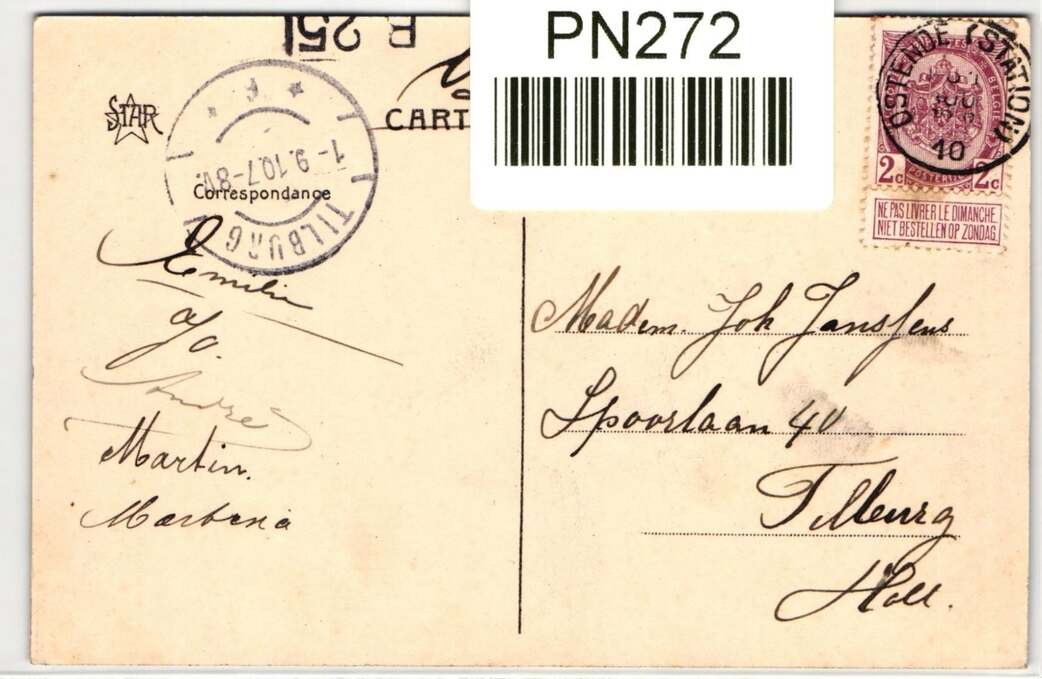 PN272
B 251
STAR
CART
Correspondance
TILBURG
1-9.10.7-8V.
OSTENDE (STATION)
10
BELGIQUE
2c 2c
POSTERIJEN
NE PAS LIVRER LE DIMANCHE
NIET BESTELLEN OP ZONDAG
Emilie
a/o.
André
Martin.
Madem. Joh Janssens
Spoorlaan 40
Tilburg
Holl.